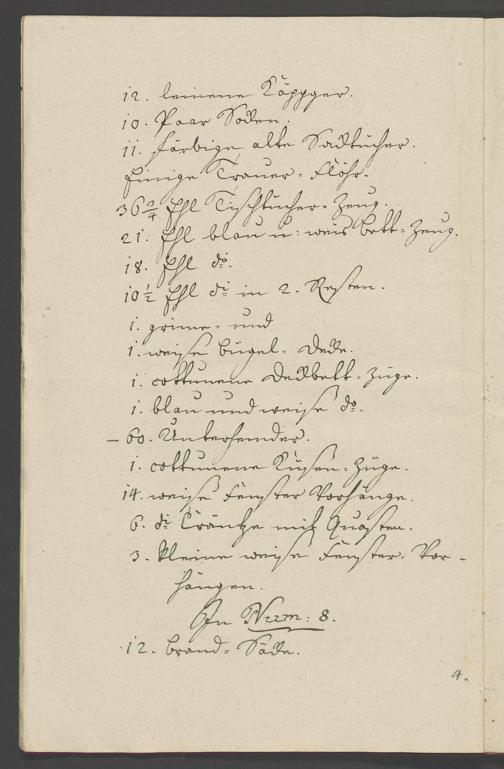 12. leinene Käppger.
10. Paar Socken.
11. färbige alte Sacktücher.
Einige Trauer-Flöhr.
36 2/4 Ehl Tischtücher-Zeug.
21. Ehl blau u: weis bett-Zeug.
18. Ehl do.
10 1/2 Ehl do in 2. Resten.
1. grüne- und
1. weise bügel-Decke.
1. cottunene Deckbett-Züge.
1. blau und weise do.
– 60. Unterhemder.
1. cottunene Küsen-Züge.
14. weise Fenster Vorhänge.
6. do Cräntze mit Quasten.
3. kleine weise Fenster-Vor-
hängen.
In Num: 8.
12. brand-Säcke.
4.